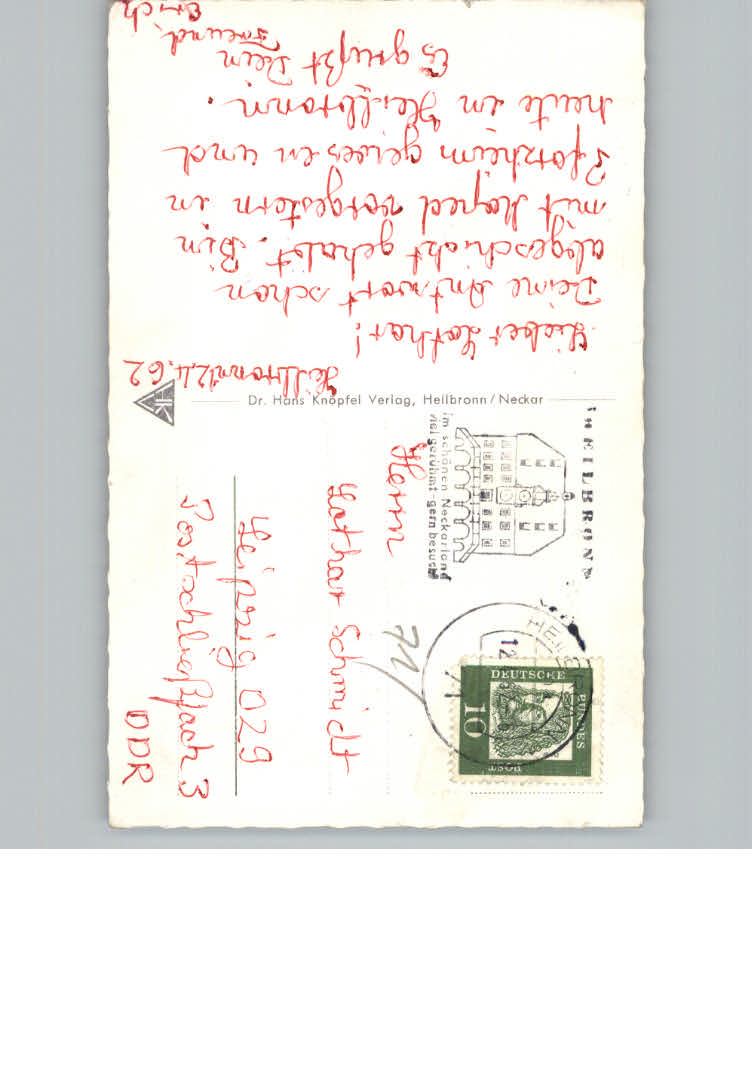 Heilbronn 12.4.62
Lieber Lothar!
Deine Antwort schon
abgeschickt gehabt. Bin
mit Moped vorgestern in
Pforzheim gewesen und
heute in Heilbronn.
Es grüßt Dein
Freund
Erich
Dr. Hans Knöpfel Verlag, Heilbronn/Neckar
HK
in HEILBRONN
im schönen Neckarland
viel gerühmt - gern besucht
HEILBRONN
12
DEUTSCHE
BUNDES
POST
10
71
Herrn
Lothar Schmidt
Leipzig O29
Postschließfach 3
DDR